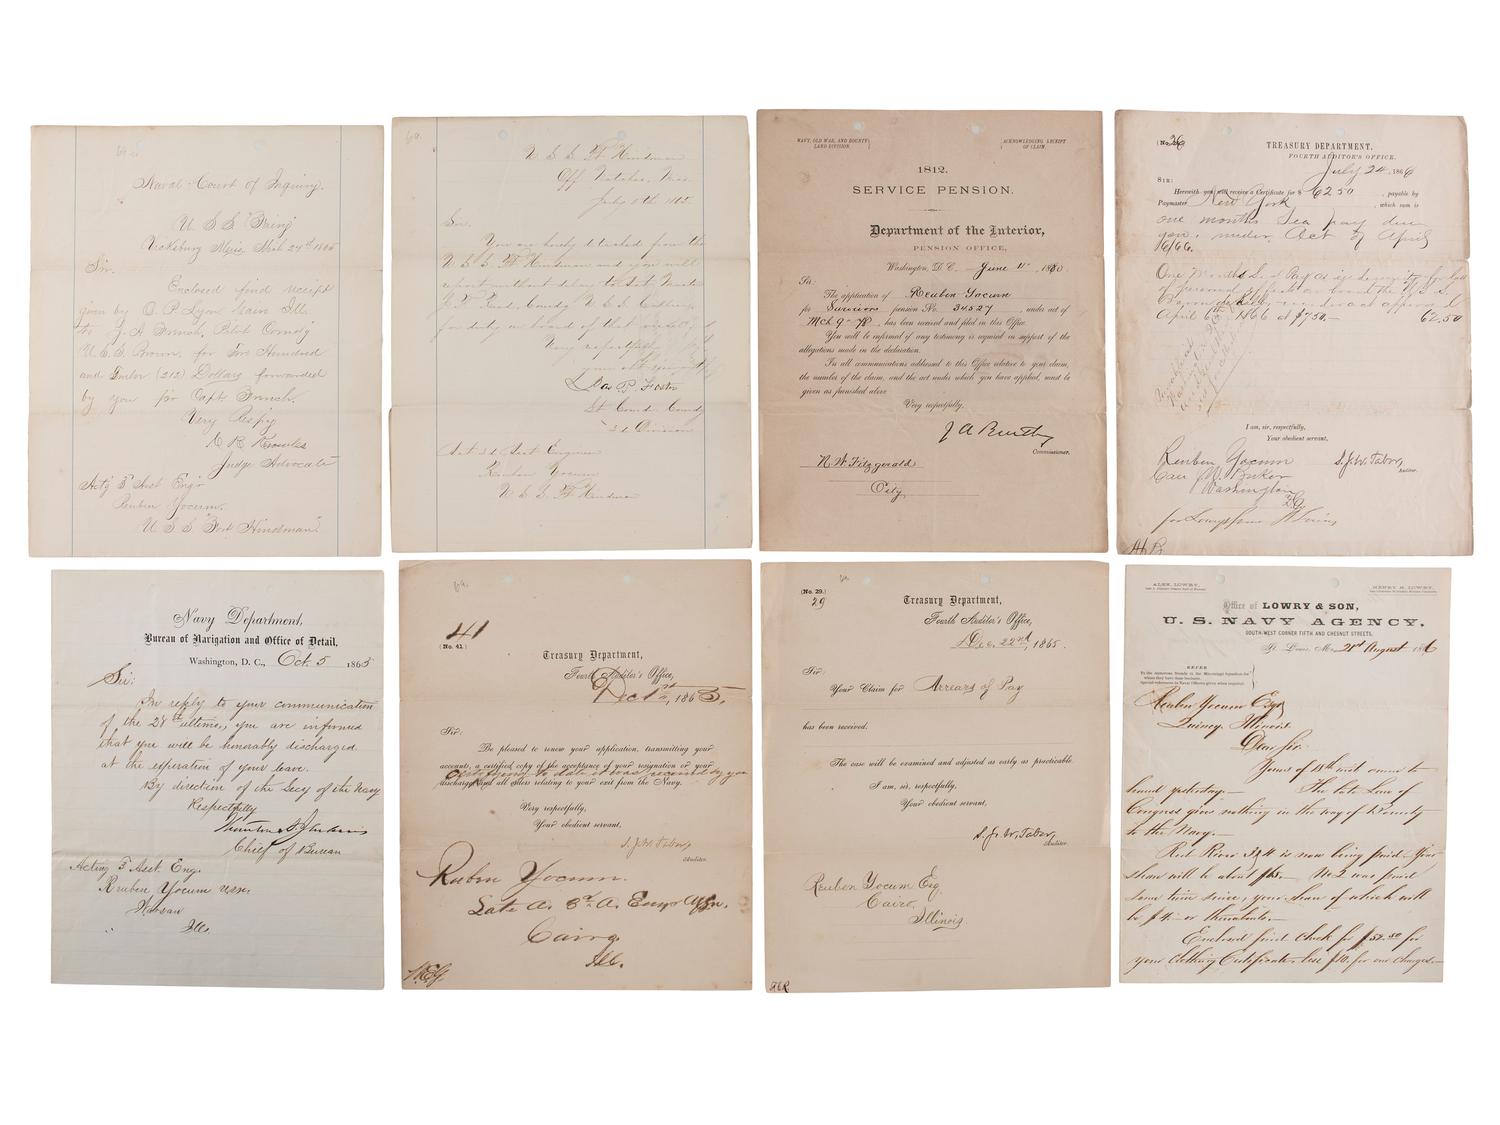 Naval Court of Inquiry.
Vicksburg Miss
Sir.
Enclosed find receipt
given by O. P. Lyon Cairo Ills.
to J. A. French, Pilot Comdg
U.S.S. for Two Hundred
and Twelve (212) Dollars forwarded
by you for Capt. French.
Very Respy
Judge Advocate
Actg 3 Asst Engr
Reuben Yocum.
U S S "Fort Hindman"
U. S. S. Ft Hindman
Off Natchez, Miss
1865
Sir.
You are hereby detached from the
U. S. S. Ft Hindman and you will
report without delay to
for duty on board of that vessel
Very respectfully
Jas. P. Foster
Lt Comd. Comdg
Division
Act 3d Asst Engineer
Reuben Yocum
U. S. S. Ft Hindman
NAVY, OLD WAR, AND BOUNTY
LAND DIVISION.
ACKNOWLEDGING RECEIPT
OF CLAIM.
1812.
SERVICE PENSION.
Department of the Interior,
PENSION OFFICE,
Washington, D. C., June 11 1880
Sir:
The application of Reuben Yocum
for Survivors pension No. 34527, under act of
Mch 9-78, has been received and filed in this Office.
You will be informed if any testimony is required in support of the
allegations made in the declaration.
In all communications addressed to this Office relative to your claim,
the number of the claim, and the act under which you have applied, must be
given as furnished above
Very respectfully,
J A Bentley
Commissioner.
N. W. Fitzgerald
City
(No. 26)
TREASURY DEPARTMENT,
FOURTH AUDITOR'S OFFICE.
July 24, 1866
SIR:
Herewith you will receive a Certificate for $ 62.50, payable by
Paymaster New York, which sum is
one months Sea pay due
you, under Act of April
6/66.
One Months S. of Pay as indemnity for loss
of personal effects on board the U.S.S.
approved
April 6th 1866 at $750.— 62.50
I am, sir, respectfully,
Your obedient servant,
S. J. W. Tabor,
Auditor.
Reuben Yocum
Care
Washington
D.C.
Navy Department,
Bureau of Navigation and Office of Detail,
Washington, D. C., Oct. 5 1865
Sir:
In reply to your communication
of the 28th ultimo, you are informed
that you will be honorably discharged
at the expiration of your leave.
By direction of the Secy of the Navy
Respectfully
Chief of Bureau
Acting 3 Asst. Eng.
Reuben Yocum USN.
Warsaw
Ills.
41
(No. 41)
Treasury Department,
Fourth Auditor's Office,
1865.
Sir:
Be pleased to renew your application, transmitting your
accounts, a certified copy of the acceptance of your resignation or your
certifying to date it was received by you
discharge, and all orders relating to your exit from the Navy.
Very respectfully,
Your obedient servant,
S. J. W. Tabor,
Auditor.
Reuben Yocum.
Late A. 3d A. Engr
Cairo,
Ills.
(No. 29.)
29
Treasury Department,
Fourth Auditor's Office,
Dec. 22nd, 1865.
Sir:
Your Claim for Arrears of Pay
has been received.
The case will be examined and adjusted as early as practicable.
I am, sir, respectfully,
Your obedient servant,
S. J. W. Tabor,
Auditor.
Reuben Yocum Esq.
Cairo,
Illinois.
ALEX. LOWRY,
HENRY B. LOWRY,
Office of LOWRY & SON,
U. S. NAVY AGENCY,
SOUTH-WEST CORNER FIFTH AND CHESNUT STREETS.
St. Louis, Mo., 21st August 1866
REFER
Reuben Yocum Esqr
Quincy, Illinois.
Dear Sir.
Yours of 18th inst came to
hand yesterday.— The late Law of
Congress give nothing in the way of Bounty
to the Navy.—
Red River 3&4 is now being paid—Your
share will be about $65.— No 2 was paid
some time since, your share of which will
be $4. or thereabouts.—
Enclosed find check for $52.50 for
your Clothing Certificate, less $10. for our charges.—